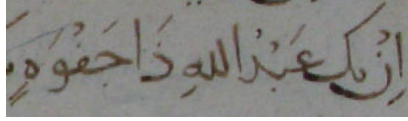 اِنْ يك عَبْدُ اللهِ ذَا جَفْوَةٍ